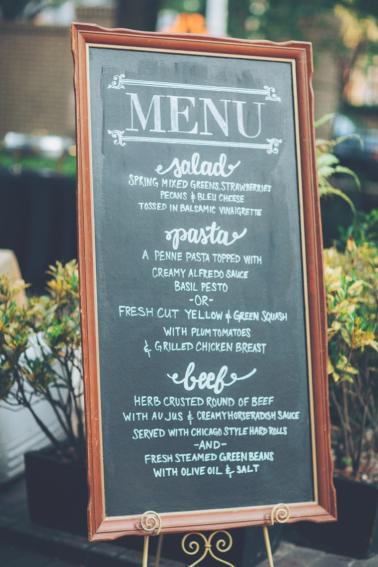 MENU
salad
SPRING MIXED GREENS, STRAWBERRIES
PECANS & BLEU CHEESE
TOSSED IN BALSAMIC VINAIGRETTE
pasta
A PENNE PASTA TOPPED WITH
CREAMY ALFREDO SAUCE
BASIL PESTO
-OR-
FRESH CUT YELLOW & GREEN SQUASH
WITH PLUM TOMATOES
& GRILLED CHICKEN BREAST
beef
HERB CRUSTED ROUND OF BEEF
WITH AU JUS & CREAMY HORSERADISH SAUCE
SERVED WITH CHICAGO STYLE HARD ROLLS
-AND-
FRESH STEAMED GREEN BEANS
WITH OLIVE OIL & SALT